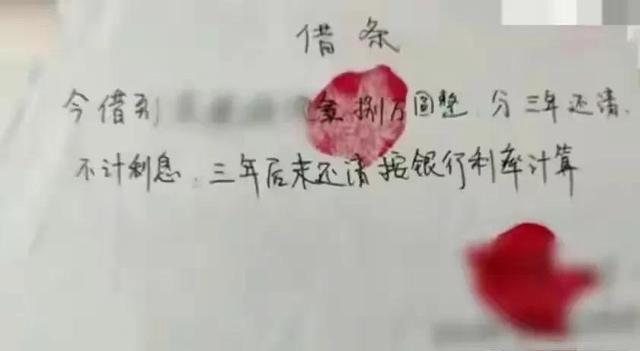 借条
今借到 捌万圆整，分三年还清，
不计利息，三年后未还清按银行利率计算